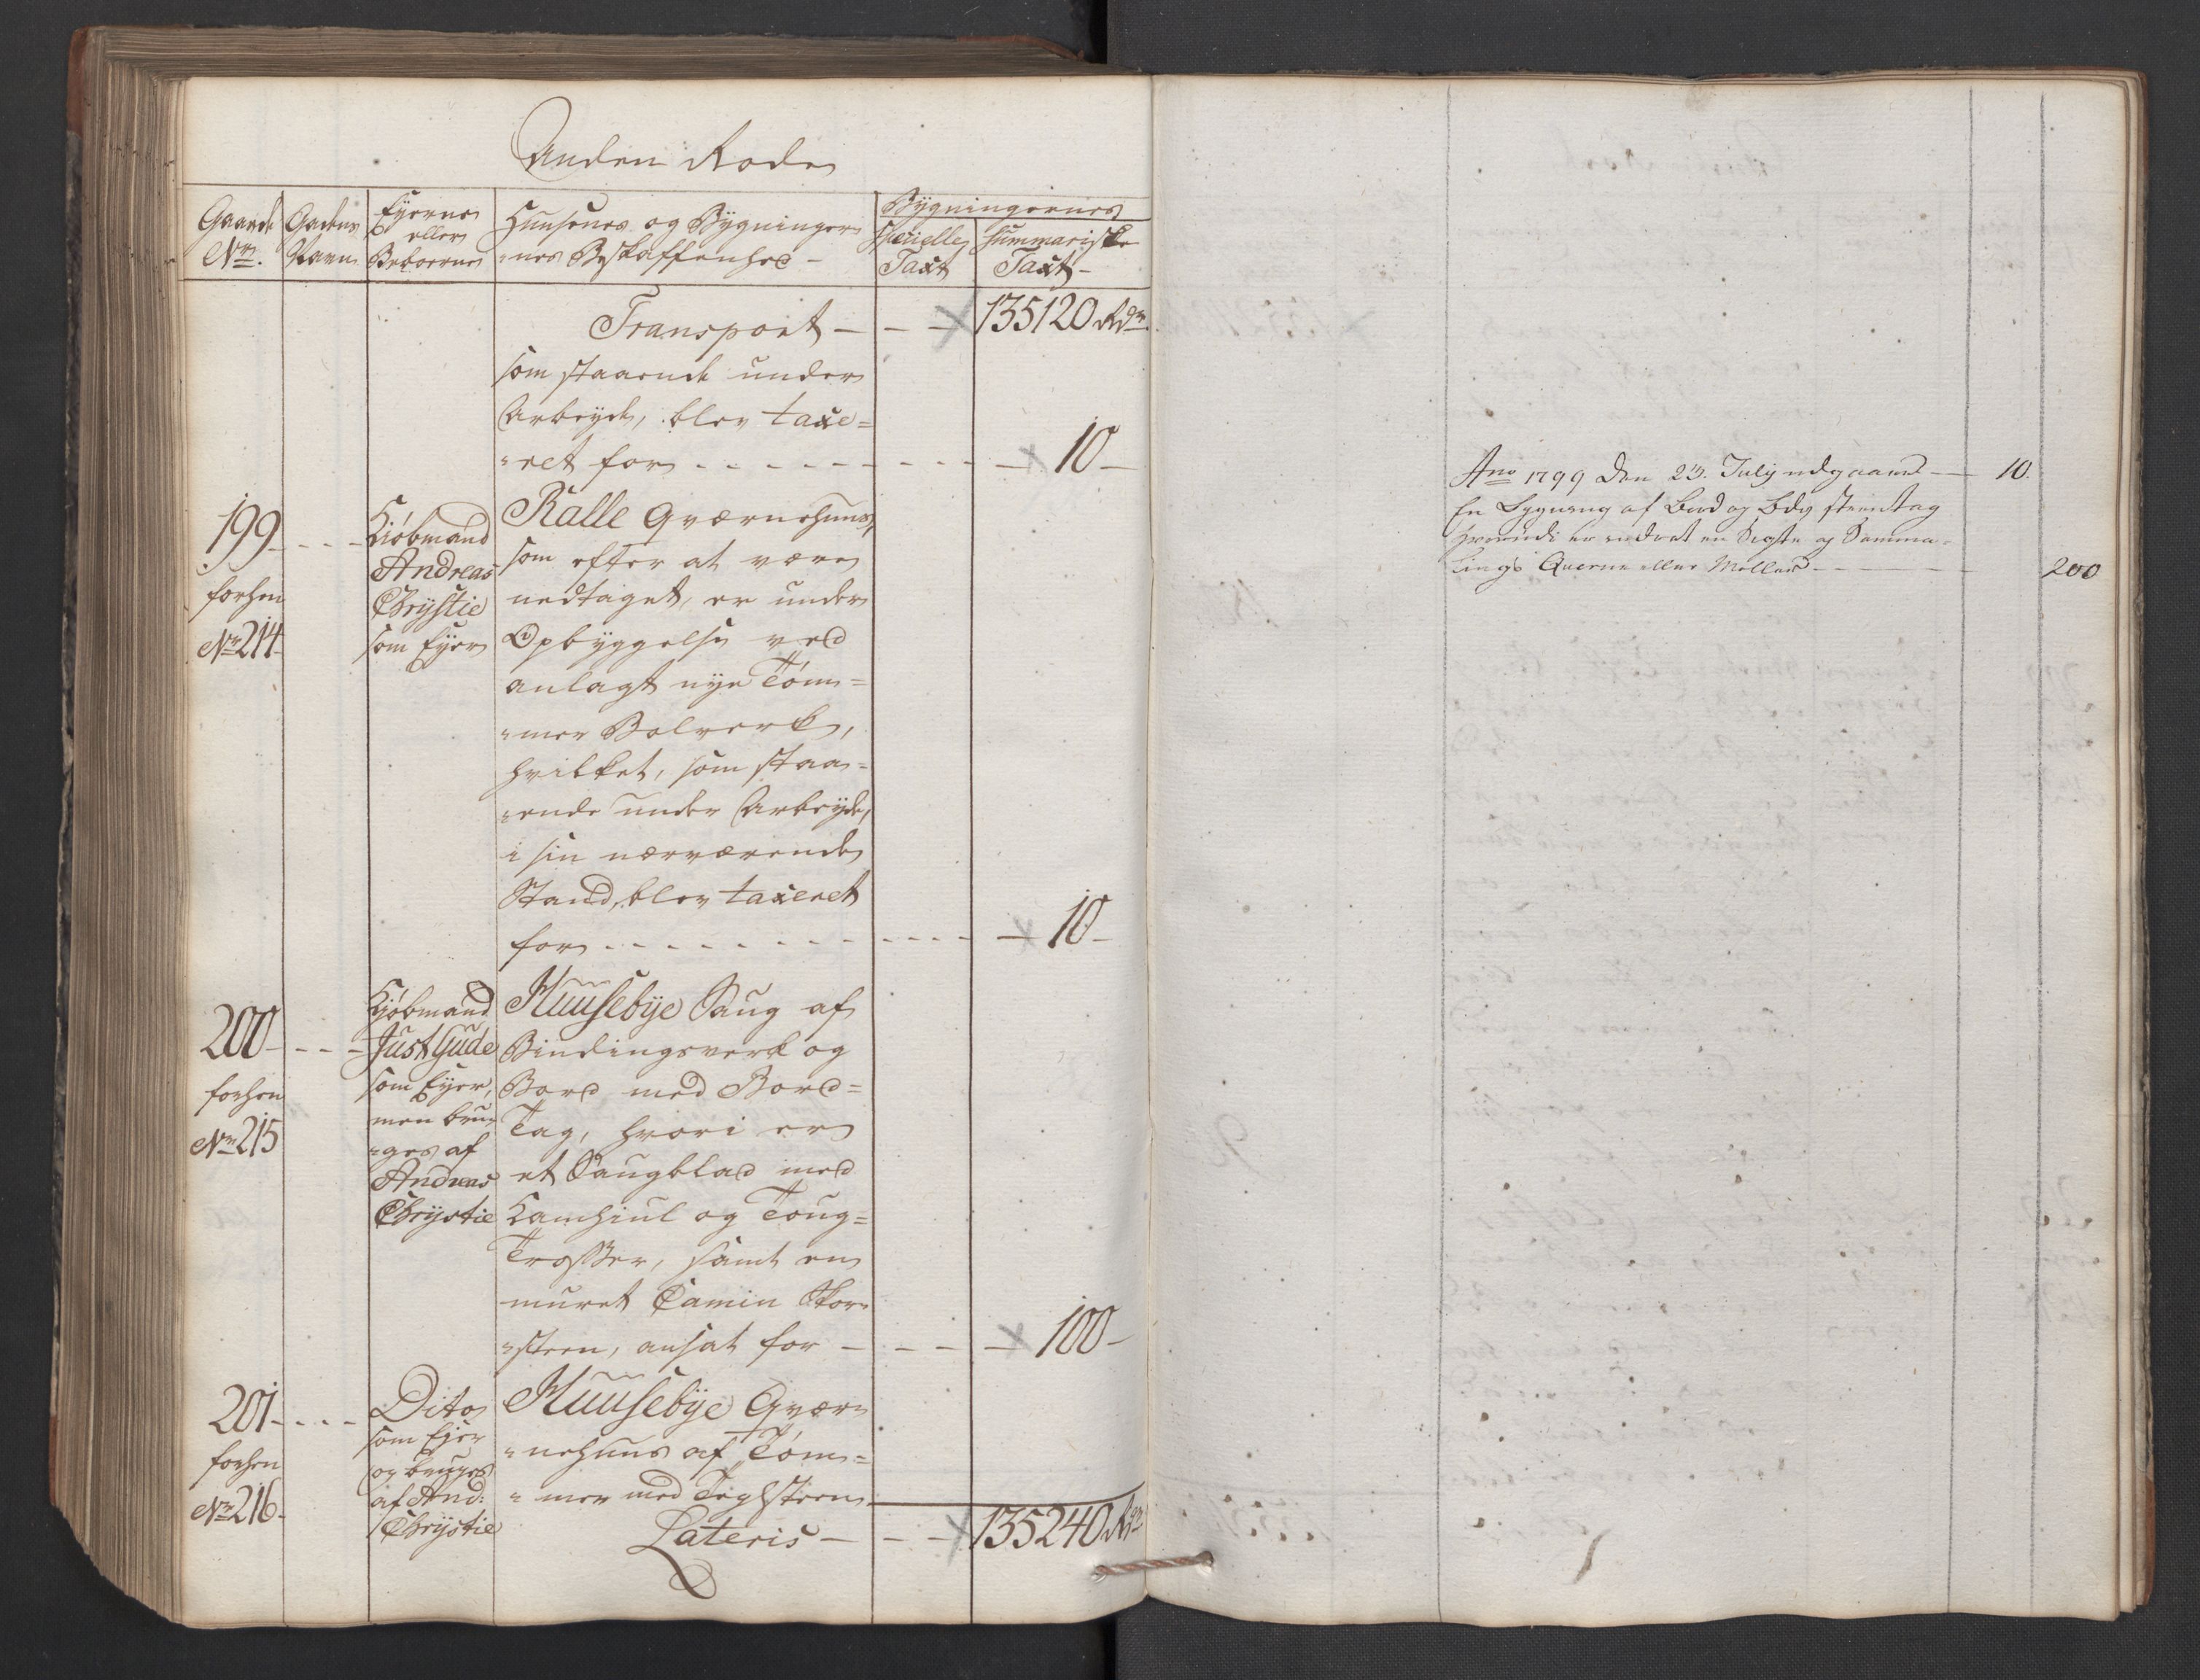 Anden Rode
Gaards Nr.
Gadens Navn
Eyerne eller Beboerne
Huusenes og Bygninger-
nes Beskaffenhed -
Bygningernes
Specielle Taxt
Summariske Taxt -
Transport - - - 135120 Rdr.
som staaende under
Arbeyde, blev taxe=
ret for - - - - - - 10 -
199 - - -
forhen
No 214
Kiøbmand
Andreas
Chrÿstie
som Eyer
Kalle Qværnehuus,
som efter at være
nedtaget, er under
Opbyggelse ved
anlagt nye Tøm=
mer Bolverk,
hvilket, som staa=
ende under Arbeyde,
i sin nærværende
Stand, blev taxeret
for - - - - - - - - 10 -
200 - - -
forhen
No 215
Kjøbmand
Just Gude
som Eyer,
men bru=
ges af
Andreas
Chrÿstie
Huusebÿe Saug af
Bindingsverk og
Bord med Bord=
Tag, hvori er
et Saugblad med
Kamhiul og Toug=
Trosser, samt en
muret Camin Skor=
steen, ansat for - - - - 100 -
201 - - - -
forhen
No 216 -
Dito
som Ejer
og bruges
af And:
Chrÿstie
Huusebÿe Qvær=
nehuus af Tøm=
mer med Teglsteen
Lateris - - - 135240 Rdr
Ano 1799 den 23. July udgaaed - 10.
En Bygning af Bord og steentag
hvorudi er indret en Sigte og Samma=
lings Querne eller Møller - - - - 200